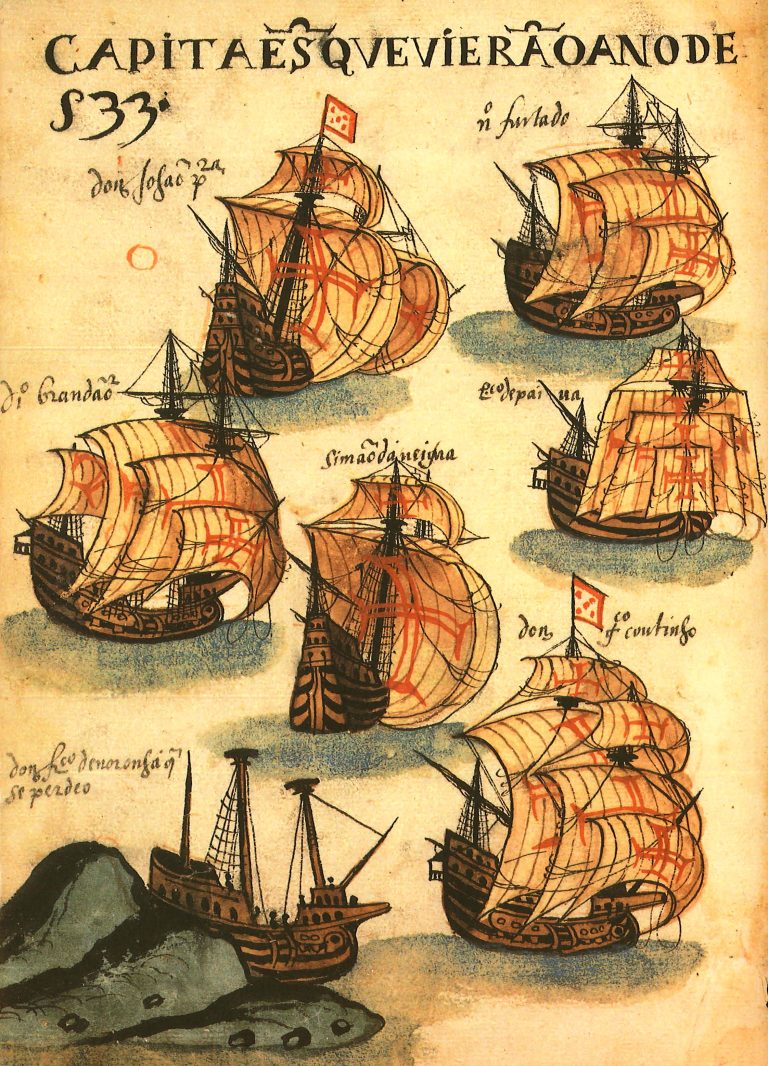 CAPITAE᷉S QVE VIERÃO ANO DE
533.
don Johaõ pra
no furtado
dio brandaõ
frco de paiua
simaõ da ueigua
don fo coutinho
don frco de noronha q̃
se perdeo